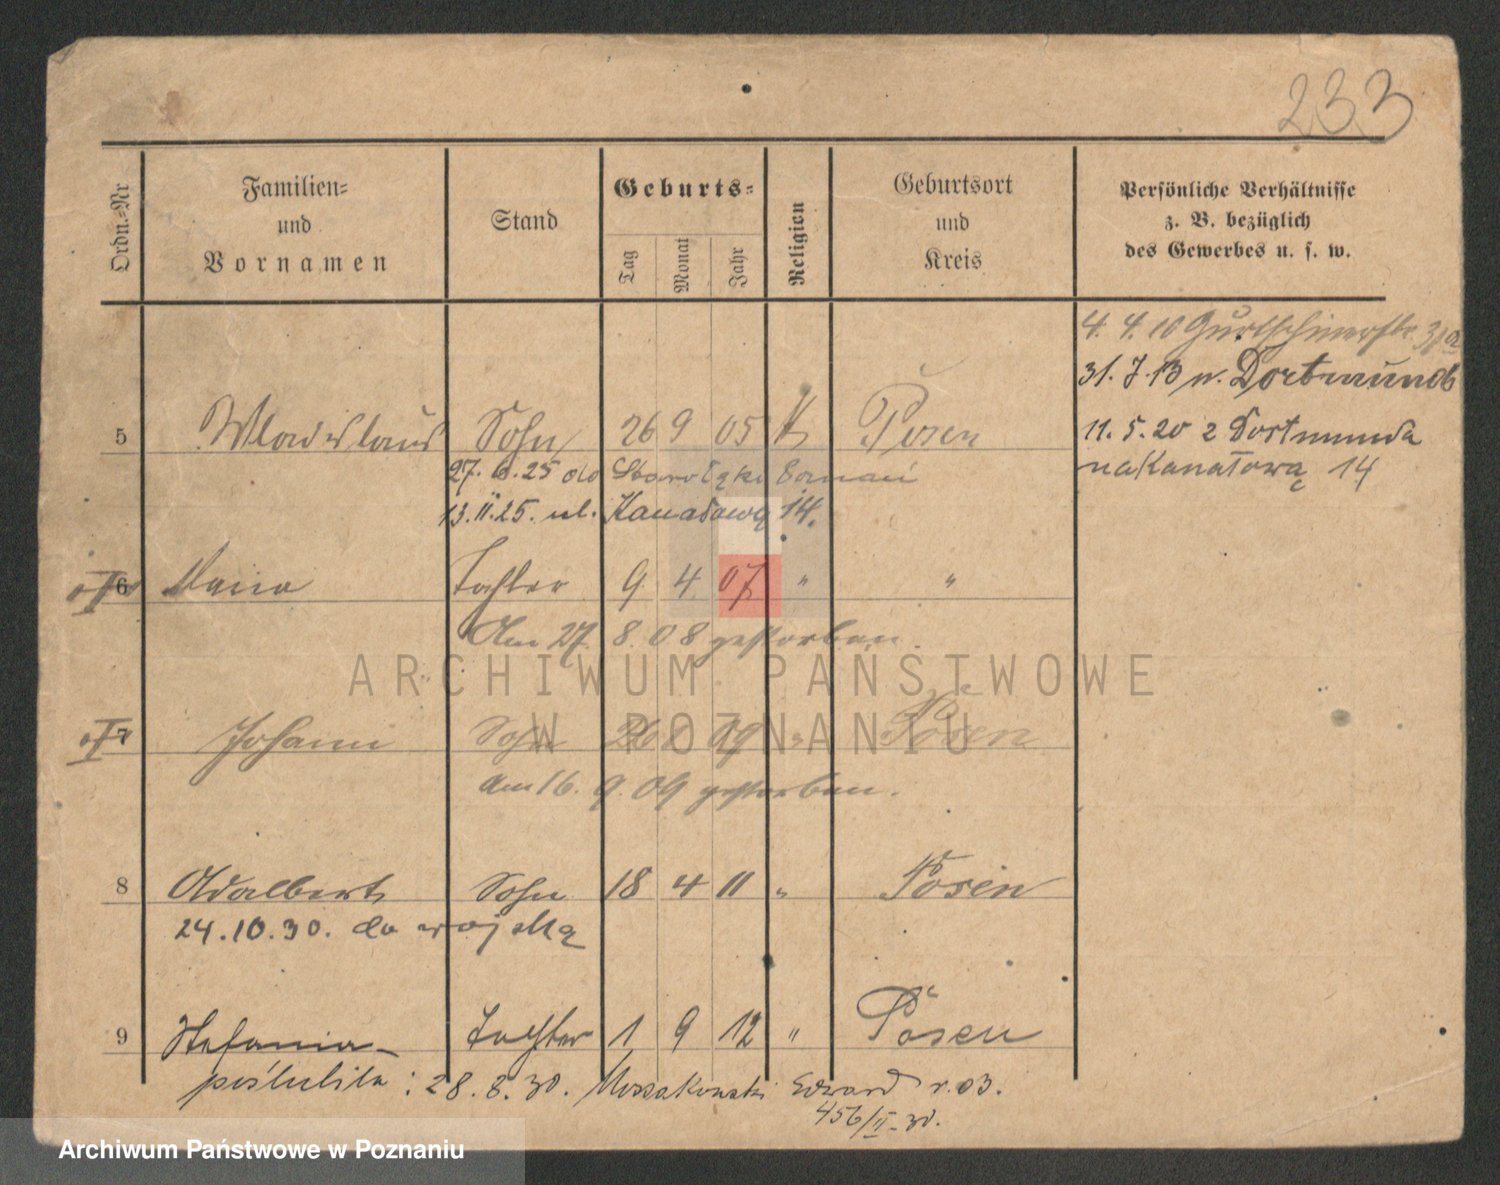 233
Ordn.-Nr
Familien-
und
Vornamen
Stand
Geburts-
Tag
Monat
Jahr
Religion
Geburtsort
und
Kreis
Persönliche Verhältnisse
z. B. bezüglich
des Gewerbes u. s. w.
4. 4. 10 Gurtschinerstr. 31a
31. 7. 13 n. Dortmund
5 Wladislaus Sohn 26 9 05 K Posen
11. 5. 20 z Dortmunda
na Kanałową 14
27. 6. 25 do Starołęki
13. II. 25. ul. Kanałową 14.
6 Maria Tochter 9 4 07 " "
Am 27. 8. 08 gestorben.
7 Johann Sohn 09 " Posen
am 16. 9. 09 gestorben.
8 Adalbert Sohn 18 4 11 " Posen
24. 10. 30. do wojska
9 Stefania Tochter 1 9 12 " Posen
poślubiła : 28. 8. 30. Mossakowski Edward r. 03.
456/II - 30.
ARCHIWUM PAŃSTWOWE
W POZNANIU
Archiwum Państwowe w Poznaniu